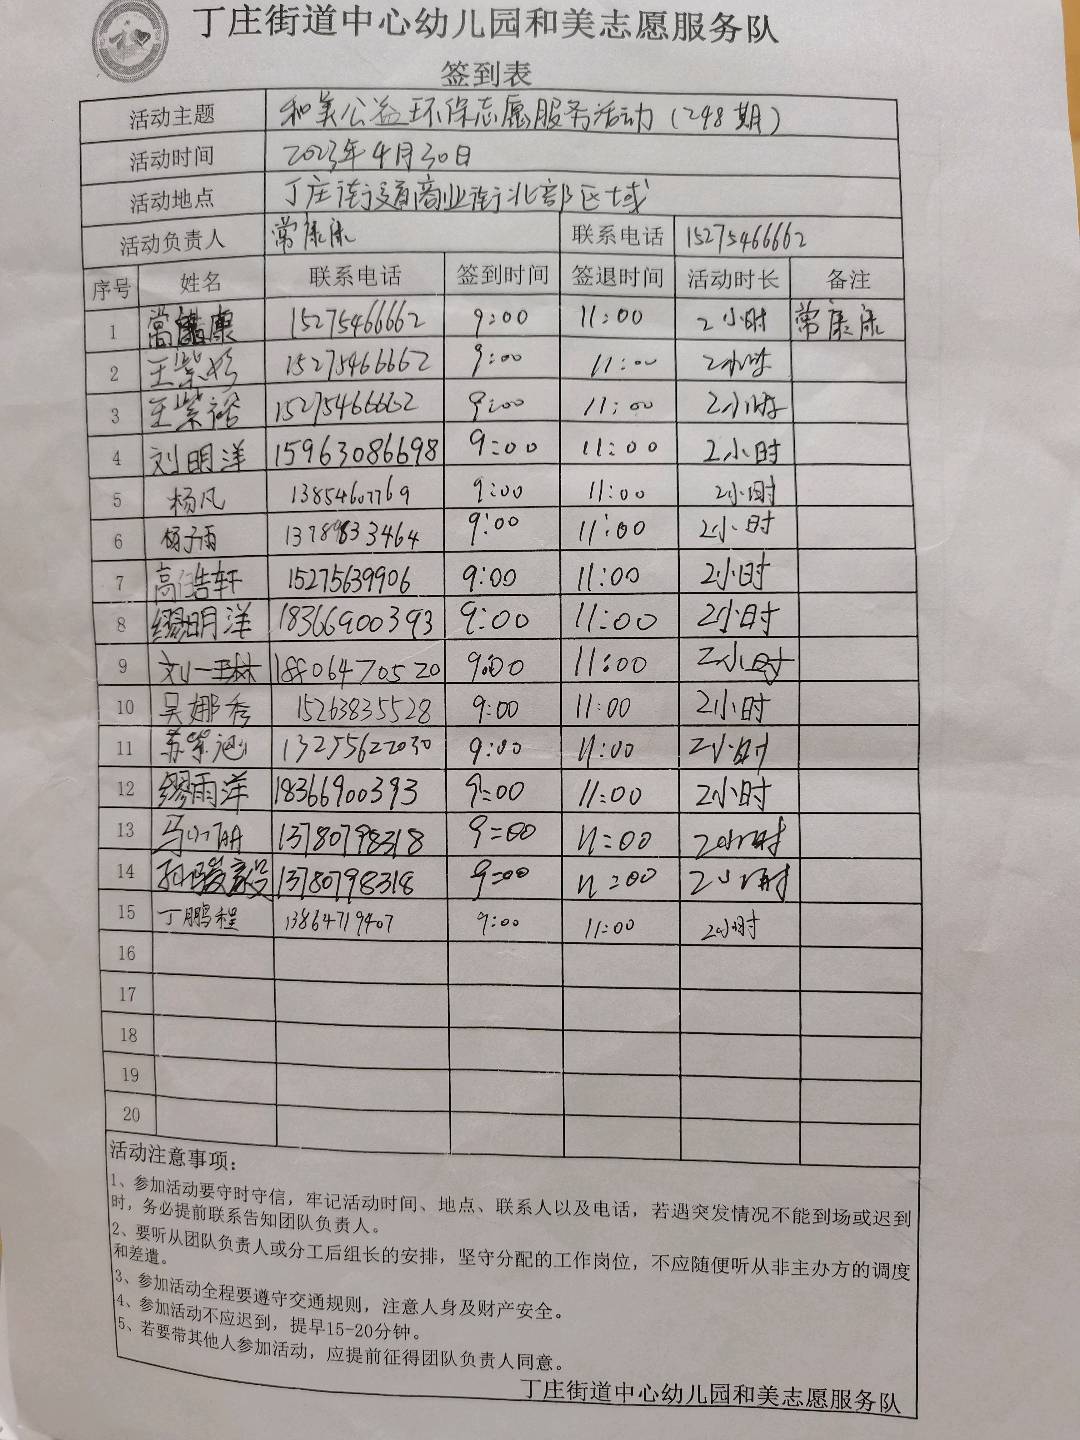 丁庄街道中心幼儿园和美志愿服务队
签到表
活动主题 和美公益环保志愿服务活动（248期）
活动时间 2023年4月30日
活动地点 丁庄街道商业街北部区域
活动负责人 常康康 联系电话 15275466662
序号 姓名 联系电话 签到时间 签退时间 活动时长 备注
1 15275466662 9:00 11:00 2小时 常康康
2 王紫杉 15275466662 9:00 11:00 2小时
3 王紫裕 15275466662 9:00 11:00 2小时
4 刘明洋 15963086698 9:00 11:00 2小时
5 杨凡 13854607769 9:00 11:00 2小时
6 杨子雨 9:00 11:00 2小时
7 高浩轩 15275639906 9:00 11:00 2小时
8 缪明洋 18366900393 9:00 11:00 2小时
9 刘一琳 9:00 11:00 2小时
10 吴娜秀 15263835528 9:00 11:00 2小时
11 13255622030 9:00 11:00 2小时
12 缪雨洋 18366900393 9:00 11:00 2小时
13 马小丽 13780798318 9=00 11=00 2小时
14 13780798318 9=00 11=00 2小时
15 丁鹏程 13864719407 9:00 11:00 2小时
16
17
18
19
20
活动注意事项：
1、参加活动要守时守信，牢记活动时间、地点、联系人以及电话，若遇突发情况不能到场或迟到
时，务必提前联系告知团队负责人。
2、要听从团队负责人或分工后组长的安排，坚守分配的工作岗位，不应随便听从非主办方的调度
和差遣。
3、参加活动全程要遵守交通规则，注意人身及财产安全。
4、参加活动不应迟到，提早15-20分钟。
5、若要带其他人参加活动，应提前征得团队负责人同意。
丁庄街道中心幼儿园和美志愿服务队